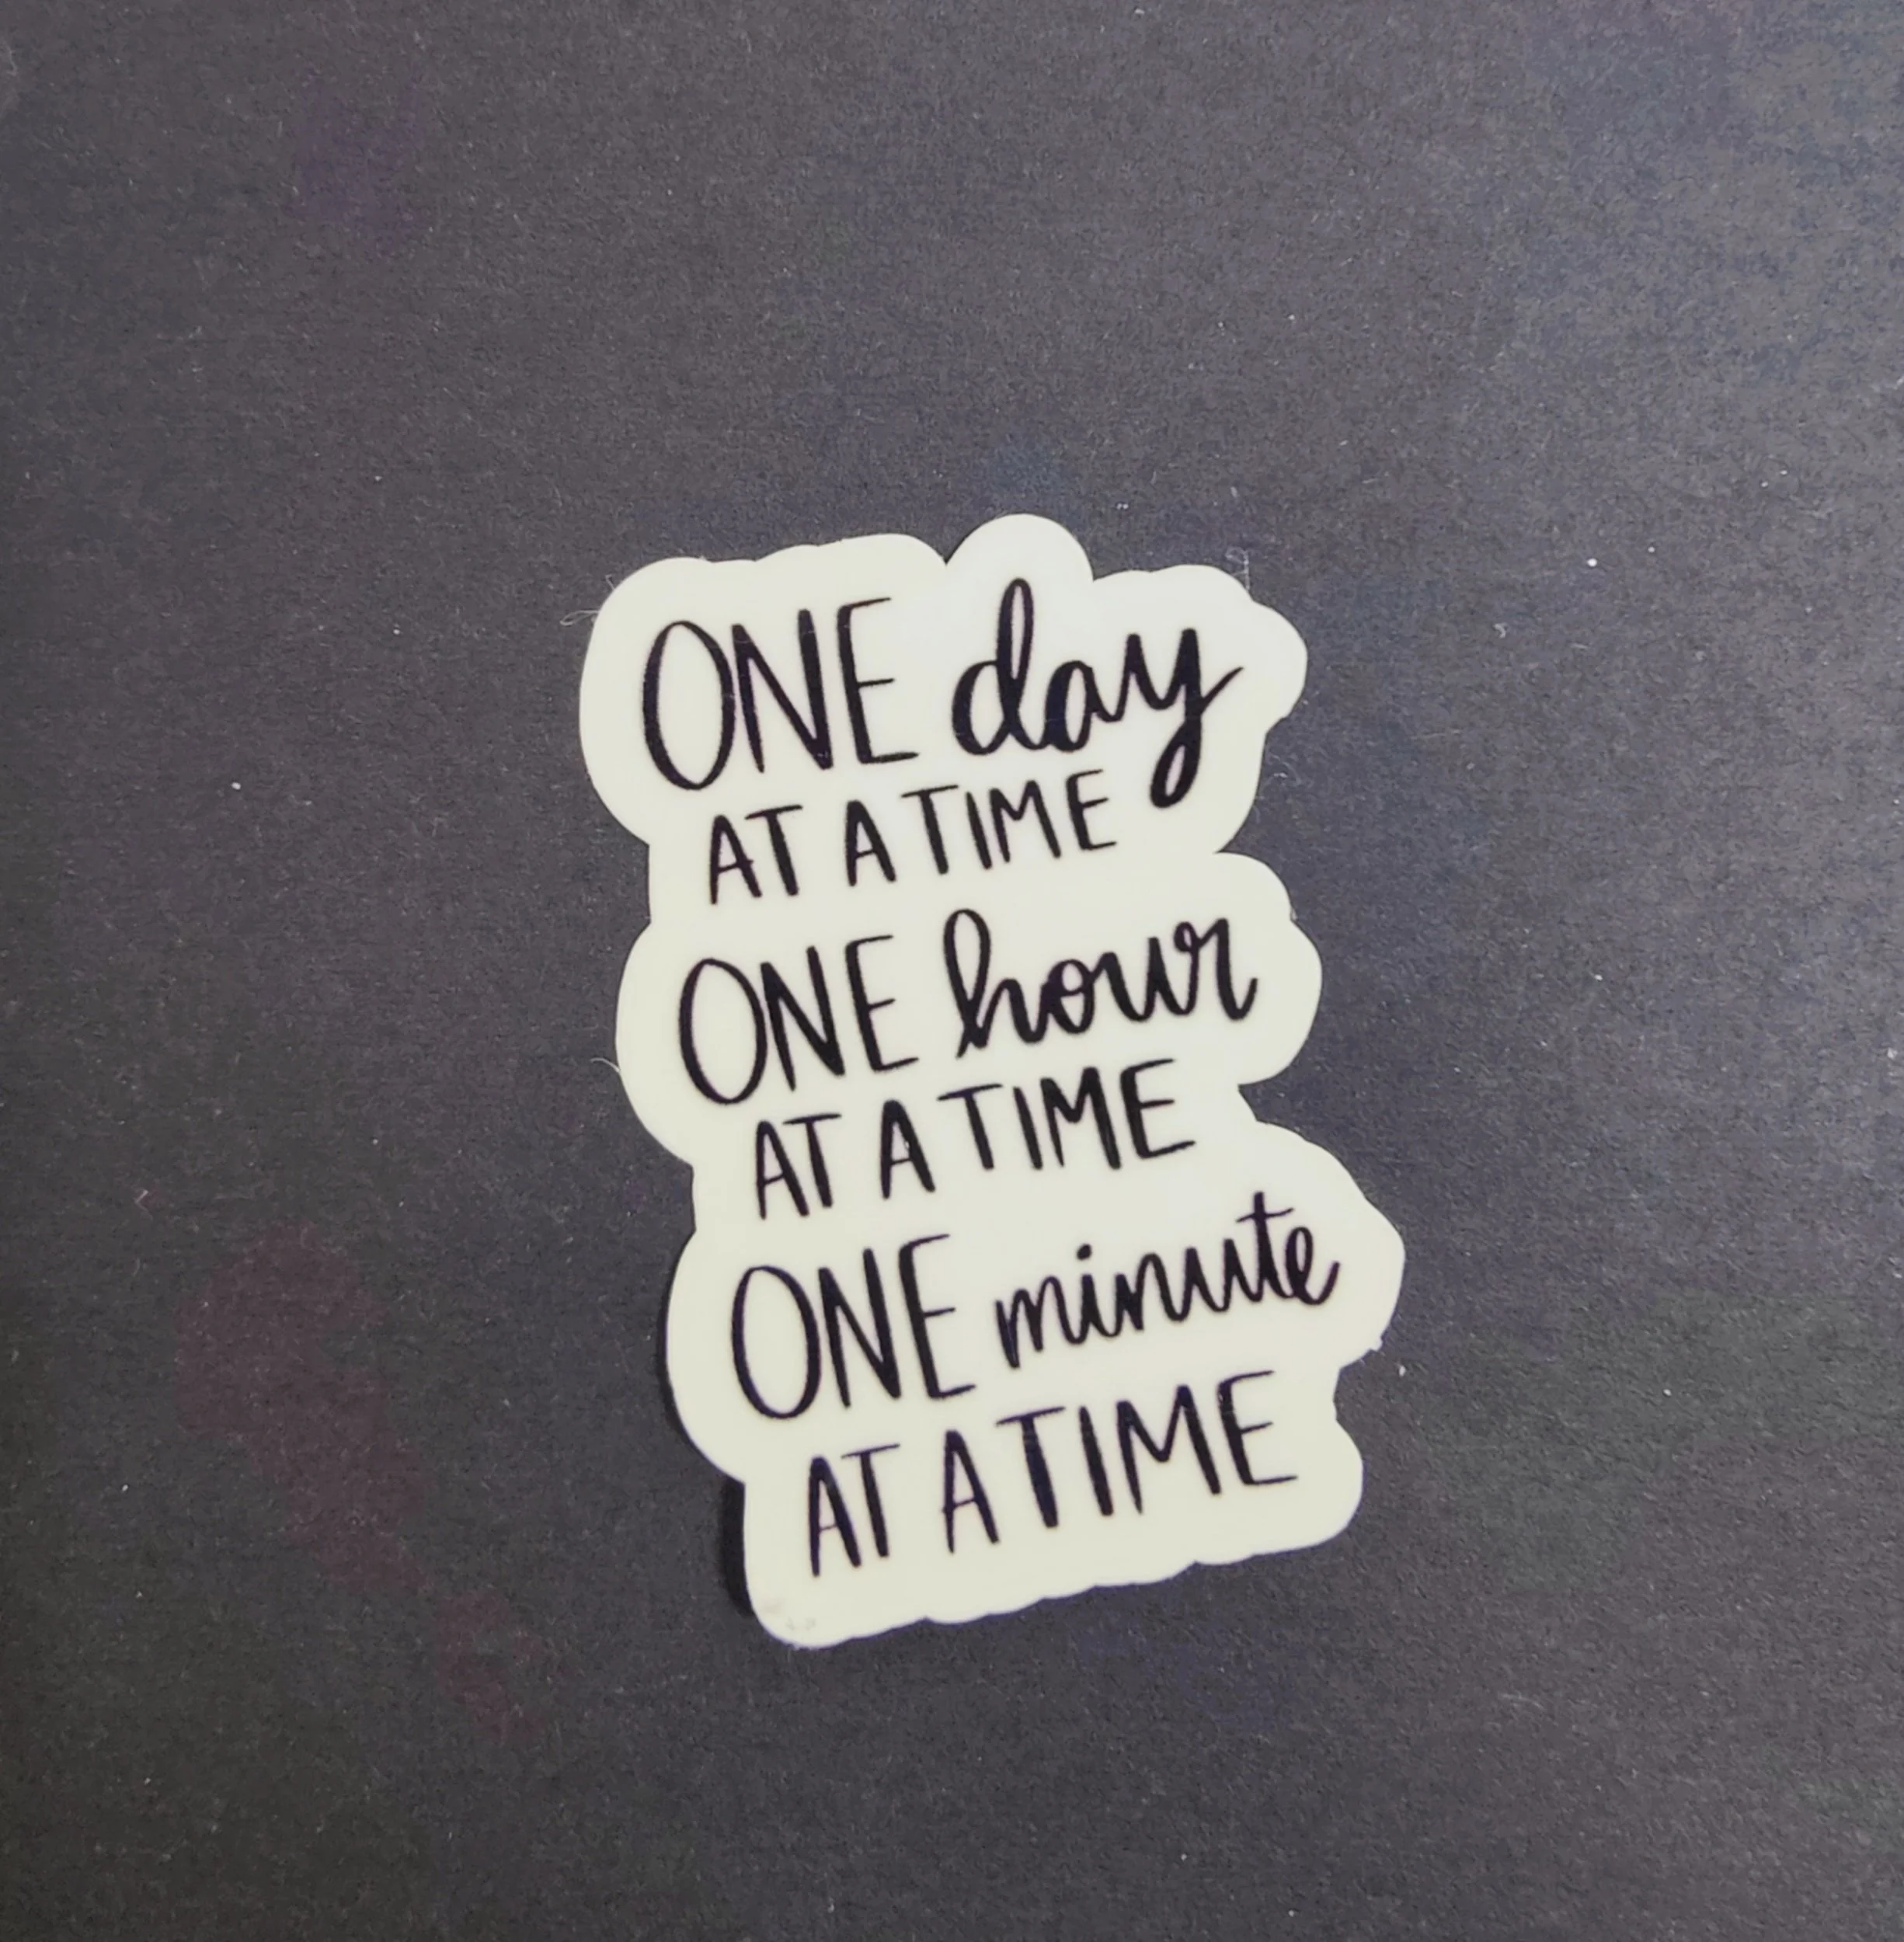 ONE day
AT A TIME
ONE hour
AT A TIME
ONE minute
AT A TIME